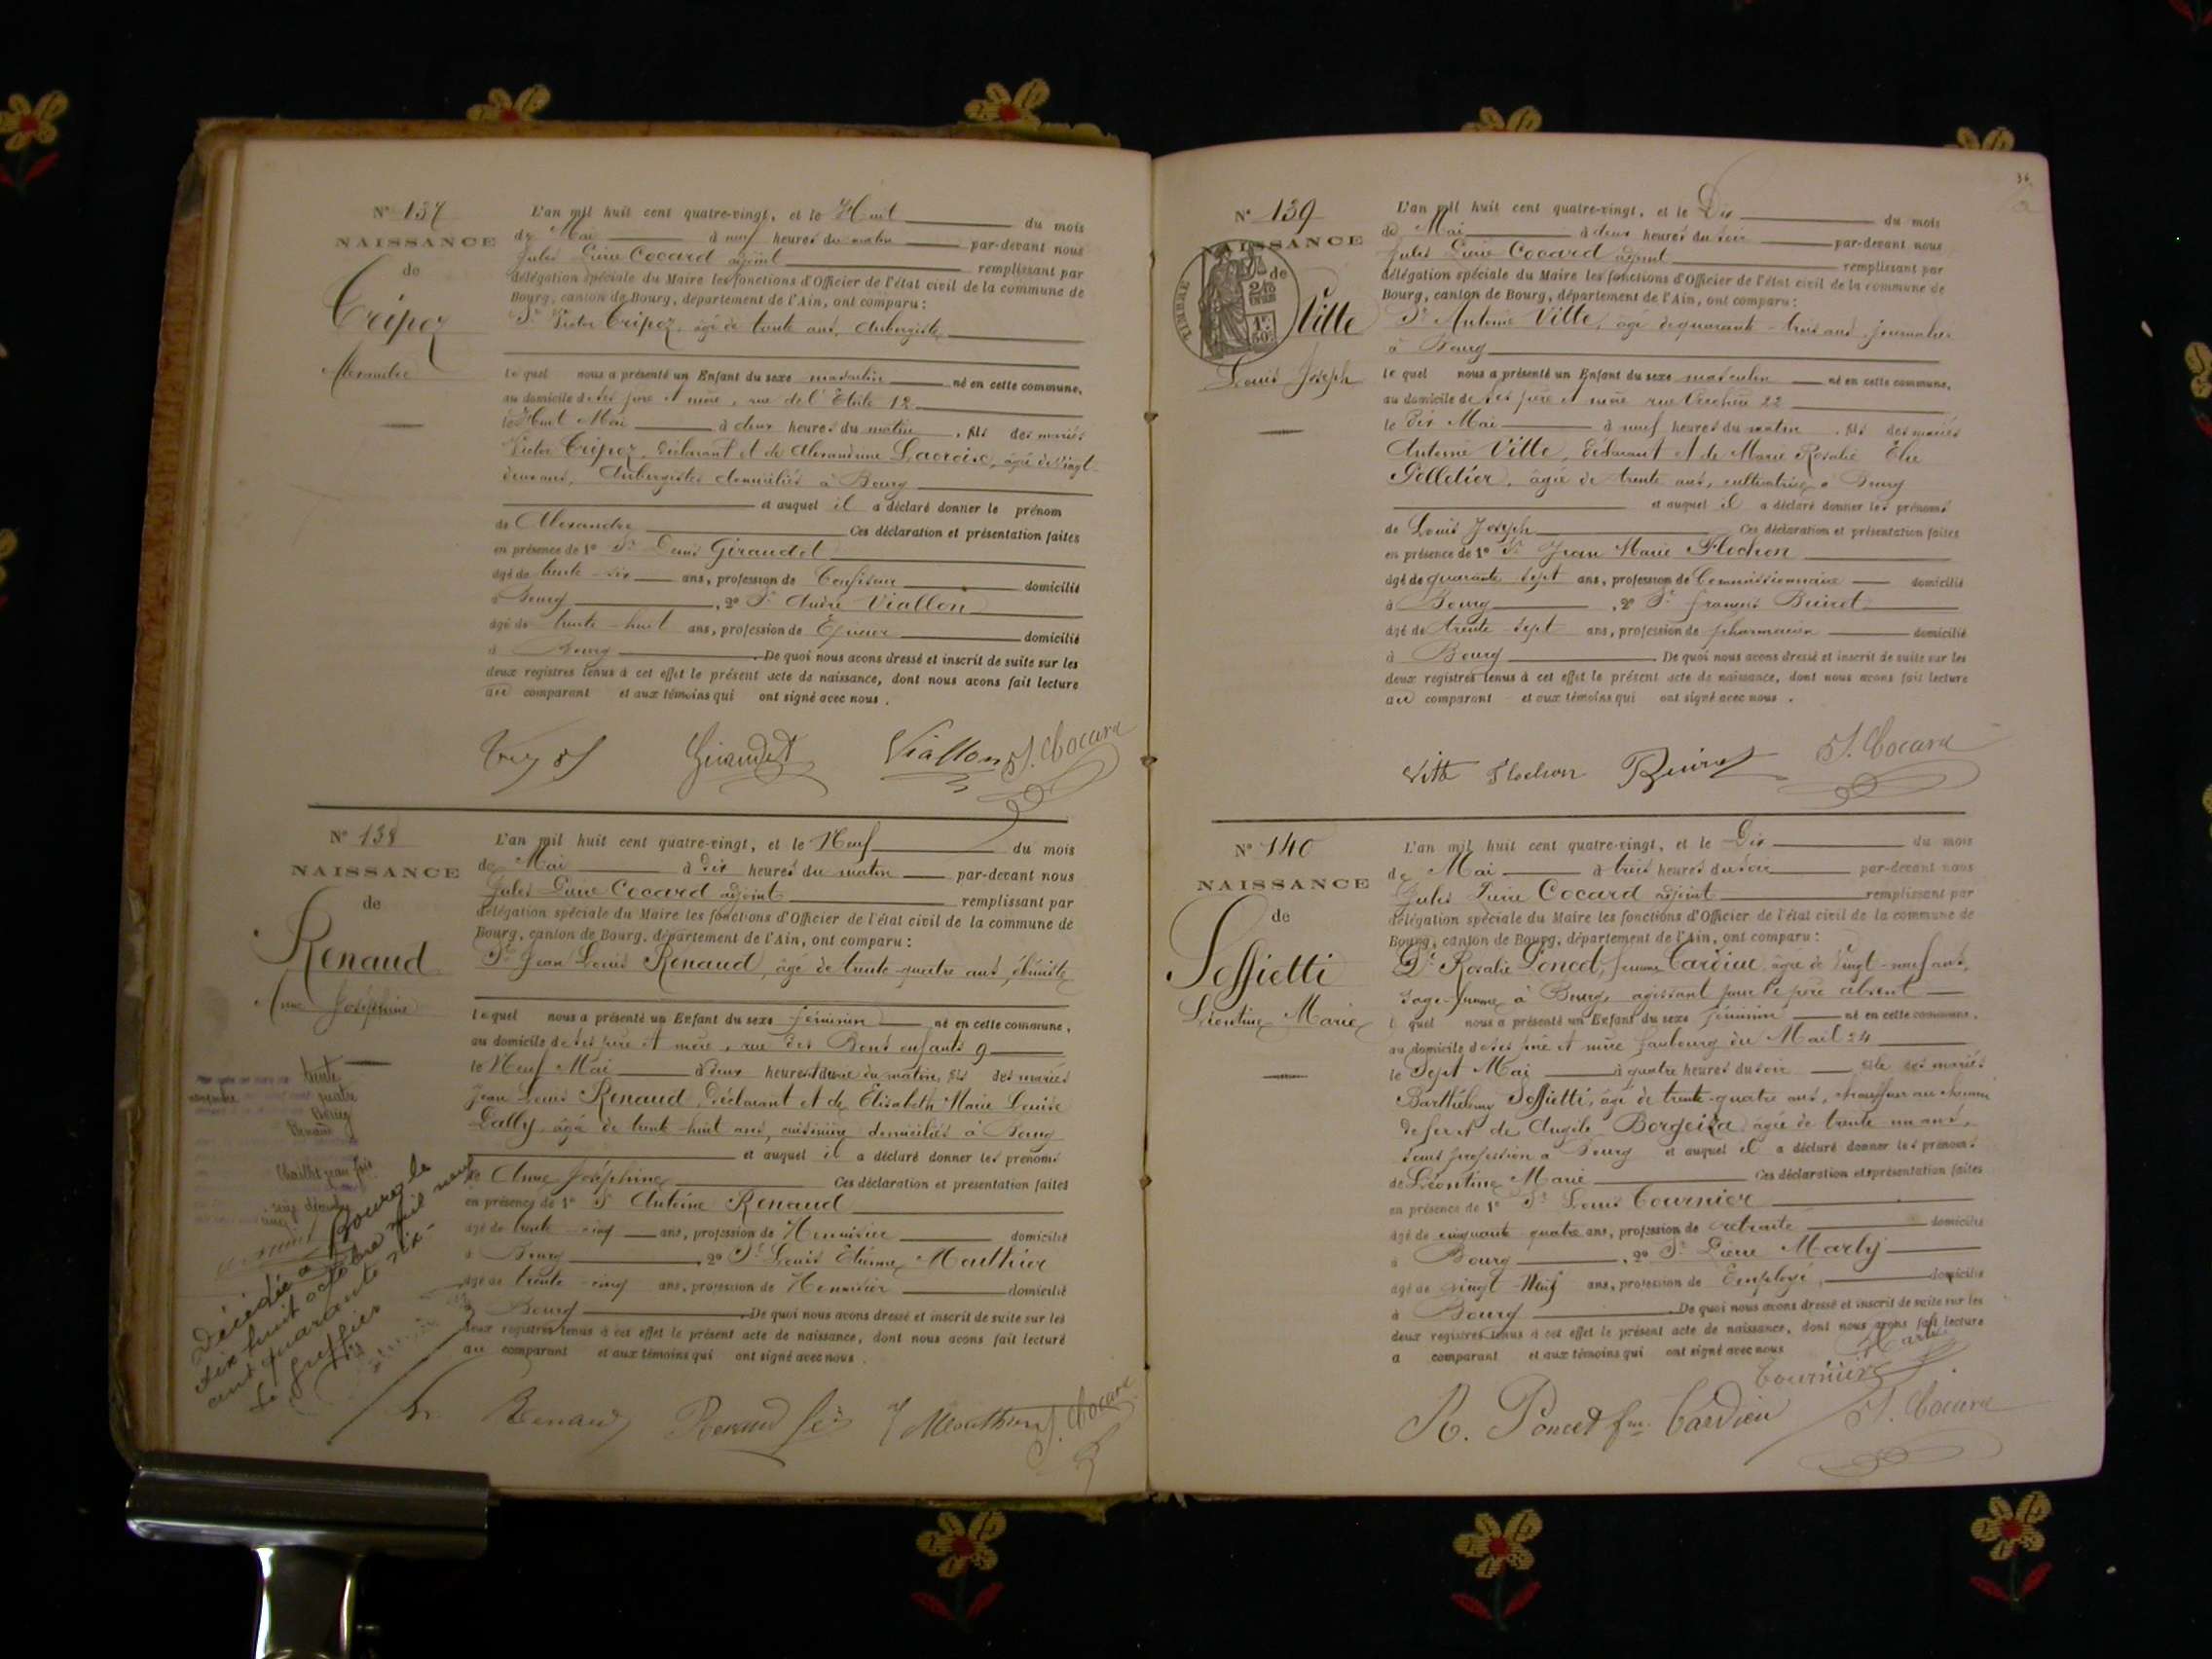 N° 137
NAISSANCE
de
Tripoz
Alexandre
L'an mil huit cent quatre-vingt, et le Huit du mois
de Mai à neuf heures du matin par-devant nous
Jules Pierre Cocard adjoint remplissant par
délégation spéciale du Maire les fonctions d'Officier de l'état civil de la commune de
Bourg, canton de Bourg, département de l'Ain, ont comparu :
Sr Victor Tripoz, âgé de trente ans, Aubergiste
le quel nous a présenté un Enfant du sexe masculin né en cette commune,
au domicile de ses père et mère, rue de l'Etoile 12
le Huit Mai à deux heures du matin, fils des mariés
Victor Tripoz, déclarant et de Alexandrine Lacroix, âgée de vingt-
deux ans, Aubergistes domiciliés à Bourg
et auquel il a déclaré donner le prénom
de Alexandre Ces déclaration et présentation faites
en présence de 1° Sr Denis Giraudet
âgé de trente-six ans, profession de Confiseur domicilié
à Bourg, 2° Sr André Viallon
âgé de trente-huit ans, profession de Epicier domicilié
à Bourg. De quoi nous avons dressé et inscrit de suite sur les
deux registres tenus à cet effet le présent acte de naissance, dont nous avons fait lecture
au comparant et aux témoins qui ont signé avec nous.
Giraudet Viallon J. Cocard
N° 138
NAISSANCE
de
Renaud
Anne Joséphine
L'an mil huit cent quatre-vingt, et le Neuf du mois
de Mai à dix heures du matin par-devant nous
Jules Pierre Cocard adjoint remplissant par
délégation spéciale du Maire les fonctions d'Officier de l'état civil de la commune de
Bourg, canton de Bourg, département de l'Ain, ont comparu :
Sr Jean Louis Renaud, âgé de trente-quatre ans, ébéniste
lequel nous a présenté un Enfant du sexe féminin né en cette commune,
au domicile de ses père et mère, rue des Bons enfants 9
le Neuf Mai à deux heures du matin, fils des mariés
Jean Louis Renaud, Déclarant et de Elisabeth Marie Louise
Dally âgée de trente-huit ans, cuisinière domiciliés à Bourg
et auquel il a déclaré donner les prénoms
de Anne Joséphine Ces déclaration et présentation faites
en présence de 1° Sr Antoine Renaud
âgé de trente-cinq ans, profession de Menuisier domicilié
à Bourg, 2° Sr Louis Etienne Mauthier
âgé de trente-cinq ans, profession de Menuisier domicilié
à Bourg. De quoi nous avons dressé et inscrit de suite sur les
deux registres tenus à cet effet le présent acte de naissance, dont nous avons fait lecture
au comparant et aux témoins qui ont signé avec nous.
trente
novembre quatre
Bourg
Renaud
Décédée à Bourg le
dix huit octobre mil neuf
cent quarante six.
Le greffier
Renaud Renaud J. Cocard
36
N° 139
NAISSANCE
de
TIMBRE
Ville
Louis Joseph
L'an mil huit cent quatre-vingt, et le Dix du mois
de Mai à deux heures du soir par-devant nous
Jules Pierre Cocard adjoint remplissant par
délégation spéciale du Maire les fonctions d'Officier de l'état civil de la commune de
Bourg, canton de Bourg, département de l'Ain, ont comparu :
Sr Antoine Ville, âgé de quarante-trois ans, journalier
à Bourg
le quel nous a présenté un Enfant du sexe masculin né en cette commune,
au domicile de ses père et mère rue Verchère 22
le Dix Mai à neuf heures du matin, fils des mariés
Antoine Ville, Déclarant et de Marie Rosalie
Pelletier, âgée de trente ans, cultivatrice à Bourg
et auquel il a déclaré donner les prénoms
de Louis Joseph Ces déclaration et présentation faites
en présence de 1° Sr Jean Marie Flochon
âgé de quarante-sept ans, profession de Commissionnaire domicilié
à Bourg, 2° Sr François
âgé de trente-sept ans, profession de pharmacien domicilié
à Bourg. De quoi nous avons dressé et inscrit de suite sur les
deux registres tenus à cet effet le présent acte de naissance, dont nous avons fait lecture
au comparant et aux témoins qui ont signé avec nous.
Flochon J. Cocard
N° 140
NAISSANCE
de
Soffietti
Léontine Marie
L'an mil huit cent quatre-vingt, et le Dix du mois
de Mai à trois heures du soir par-devant nous
Jules Pierre Cocard adjoint remplissant par
délégation spéciale du Maire les fonctions d'Officier de l'état civil de la commune de
Bourg, canton de Bourg, département de l'Ain, ont comparu :
De Rosalie Poncet, femme Cardieu, âgée de vingt-neuf ans,
sage-femme à Bourg, agissant pour le père absent
le quel nous a présenté un Enfant du sexe féminin né en cette commune,
au domicile de ses père et mère faubourg du Mail 24
le Sept Mai à quatre heures du soir fille des mariés
Barthélemy Soffietti, âgé de trente-quatre ans, chauffeur au chemin
de fer et de Angèle, âgée de trente-un ans,
sans profession à Bourg et auquel il a déclaré donner les prénoms
de Léontine Marie Ces déclaration et présentation faites
en présence de 1° Sr Louis Tournier
âgé de cinquante-quatre ans, profession de retraité domicilié
à Bourg, 2° Sr Pierre Marly
âgé de vingt-Neuf ans, profession de Employé, domicilié
à Bourg. De quoi nous avons dressé et inscrit de suite sur les
deux registres tenus à cet effet le présent acte de naissance, dont nous avons fait lecture
a comparant et aux témoins qui ont signé avec nous
Tournier
R. Poncet fme Cardieu J. Cocard